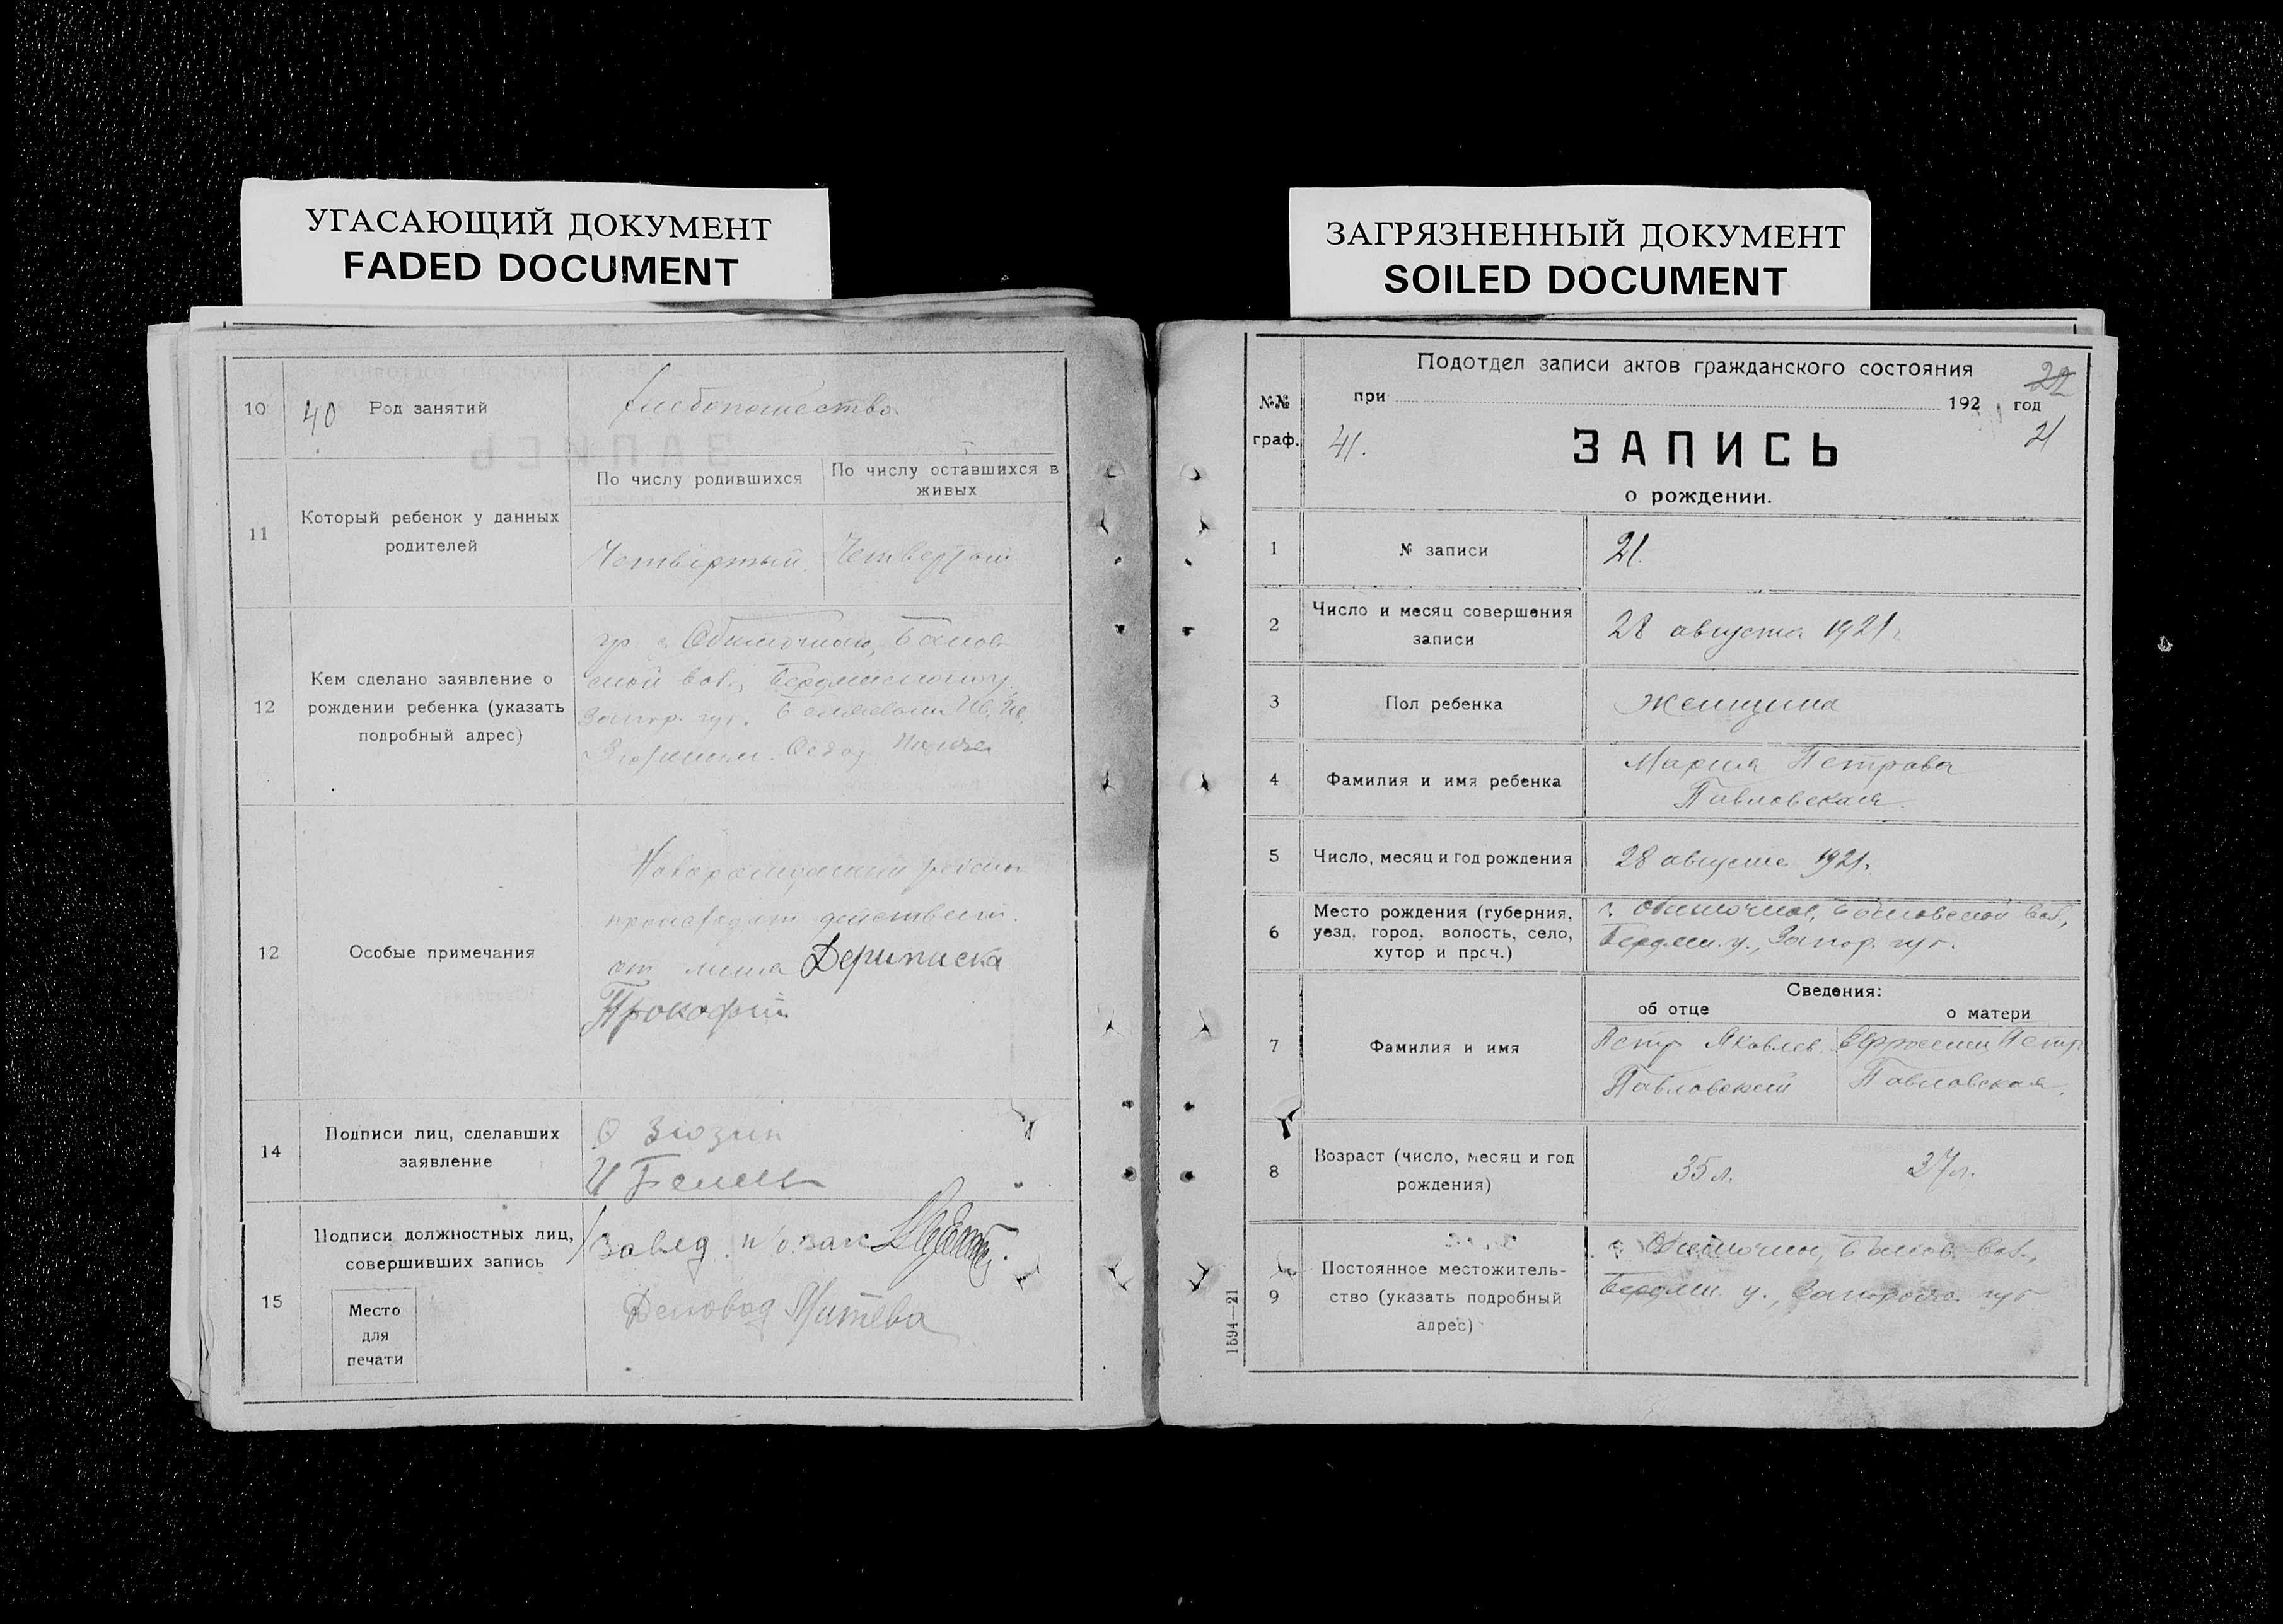 УГАСАЮЩИЙ ДОКУМЕНТ
FADED DOCUMENT
10
40
Род занятий
хлебопашество
11
Который ребенок у данных
родителей
По числу родившихся
Четвертый.
По числу оставшихся в
живых
Четвертый
12
Кем сделано заявление о
рождении ребенка (указать
подробный адрес)
гр. с. Обиточное,
вол., Бердянского у.
Запор. губ.
12
Особые примечания
Новорожденный
происходит действит.
от
Дерипаска
Прокофий
14
Подписи лиц, сделавших
заявление
Зюзин
И
15
Подписи должностных лиц,
совершивших запись
Место
для
печати
Завед. п/о. зап
Деловод
ЗАГРЯЗНЕННЫЙ ДОКУМЕНТ
SOILED DOCUMENT
№№
граф.
Подотдел записи актов гражданского состояния
22
при 192 год
41.
21
ЗАПИСЬ
о рождении.
1
№ записи
21.
2
Число и месяц совершения
записи
28 августа 1921 г.
3
Пол ребенка
Женщина
4
Фамилия и имя ребенка
Мария Петрова
Павловская.
5
Число, месяц и год рождения
28 августа 1921 г.
6
Место рождения (губерния,
уезд, город, волость, село,
хутор и проч.)
с. Обиточное, вол.,
Бердян. у., Запор. губ.
Сведения:
об отце
о матери
7
Фамилия и имя
Петр Яковлев.
Павловский
Ефросиния Петр.
Павловская.
8
Возраст (число, месяц и год
рождения)
35 л.
37 л.
9
Постоянное местожитель-
ство (указать подробный
адрес)
с. Обиточное, вол.,
Бердян. у., губ.
1594—21